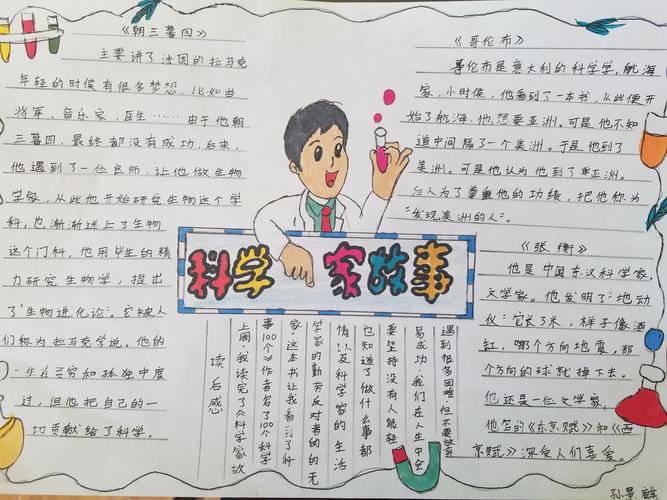 《朝三暮四》
主要讲了法国的拉马克
年轻的时候有很多梦想，比如当
将军，音乐家，医生……由于他朝
三暮四，最终都没有成功，后来，
他遇到了一位良师，让他做生物
学家，从此他开始研究生物这个学
科，也渐渐迷上了生物
这个门科，他用毕生的精
力研究生物学，提出
了"生物进化论"。它被人
们称为拉马克学说。他的
一生在贫穷和孤独中度
过，但他把自己的一
切贡献给了科学。
科学家故事
《哥伦布》
哥伦布是意大利的科学学，航海
家，小时侯，他看到了一本书，从此便开
始了航海，他想要亚洲。可是他不知
道中间隔了一个美洲。于是他到了
美洲。可是他认为他到了亚洲。
后人为了尊重他的功绩，把他称为
"发现美洲的人"。
《张衡》
他是中国东汉科学家，
文学家。他发明了:地动
仪:它长了米，样子像酒
缸，哪个方向地震，那
个方向的球就掉下去。
他还是一位文学家，
他的《东京赋》和《西
京赋》深受人们喜爱。
读后感
上周，我读完了《科学家故
事100个》作者名了100个科学
家，这本书让我看到了科
学家的勤劳反对者的的无
情以及科学家的生活
也知道了做什么事都
要坚持没有人能轻
易成功，我们在人生中会
遇到很多困难，但不要放弃
孙景